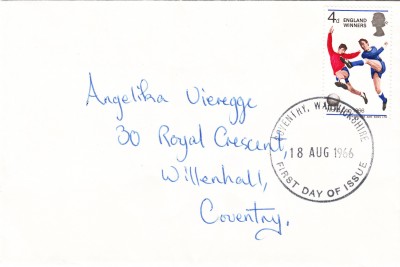 4d ENGLAND
WINNERS
Angelika Vieregge
30 Royal Crescent,
Willenhall,
Coventry.
COVENTRY, WARWICKSHIRE
18 AUG 1966
FIRST DAY OF ISSUE